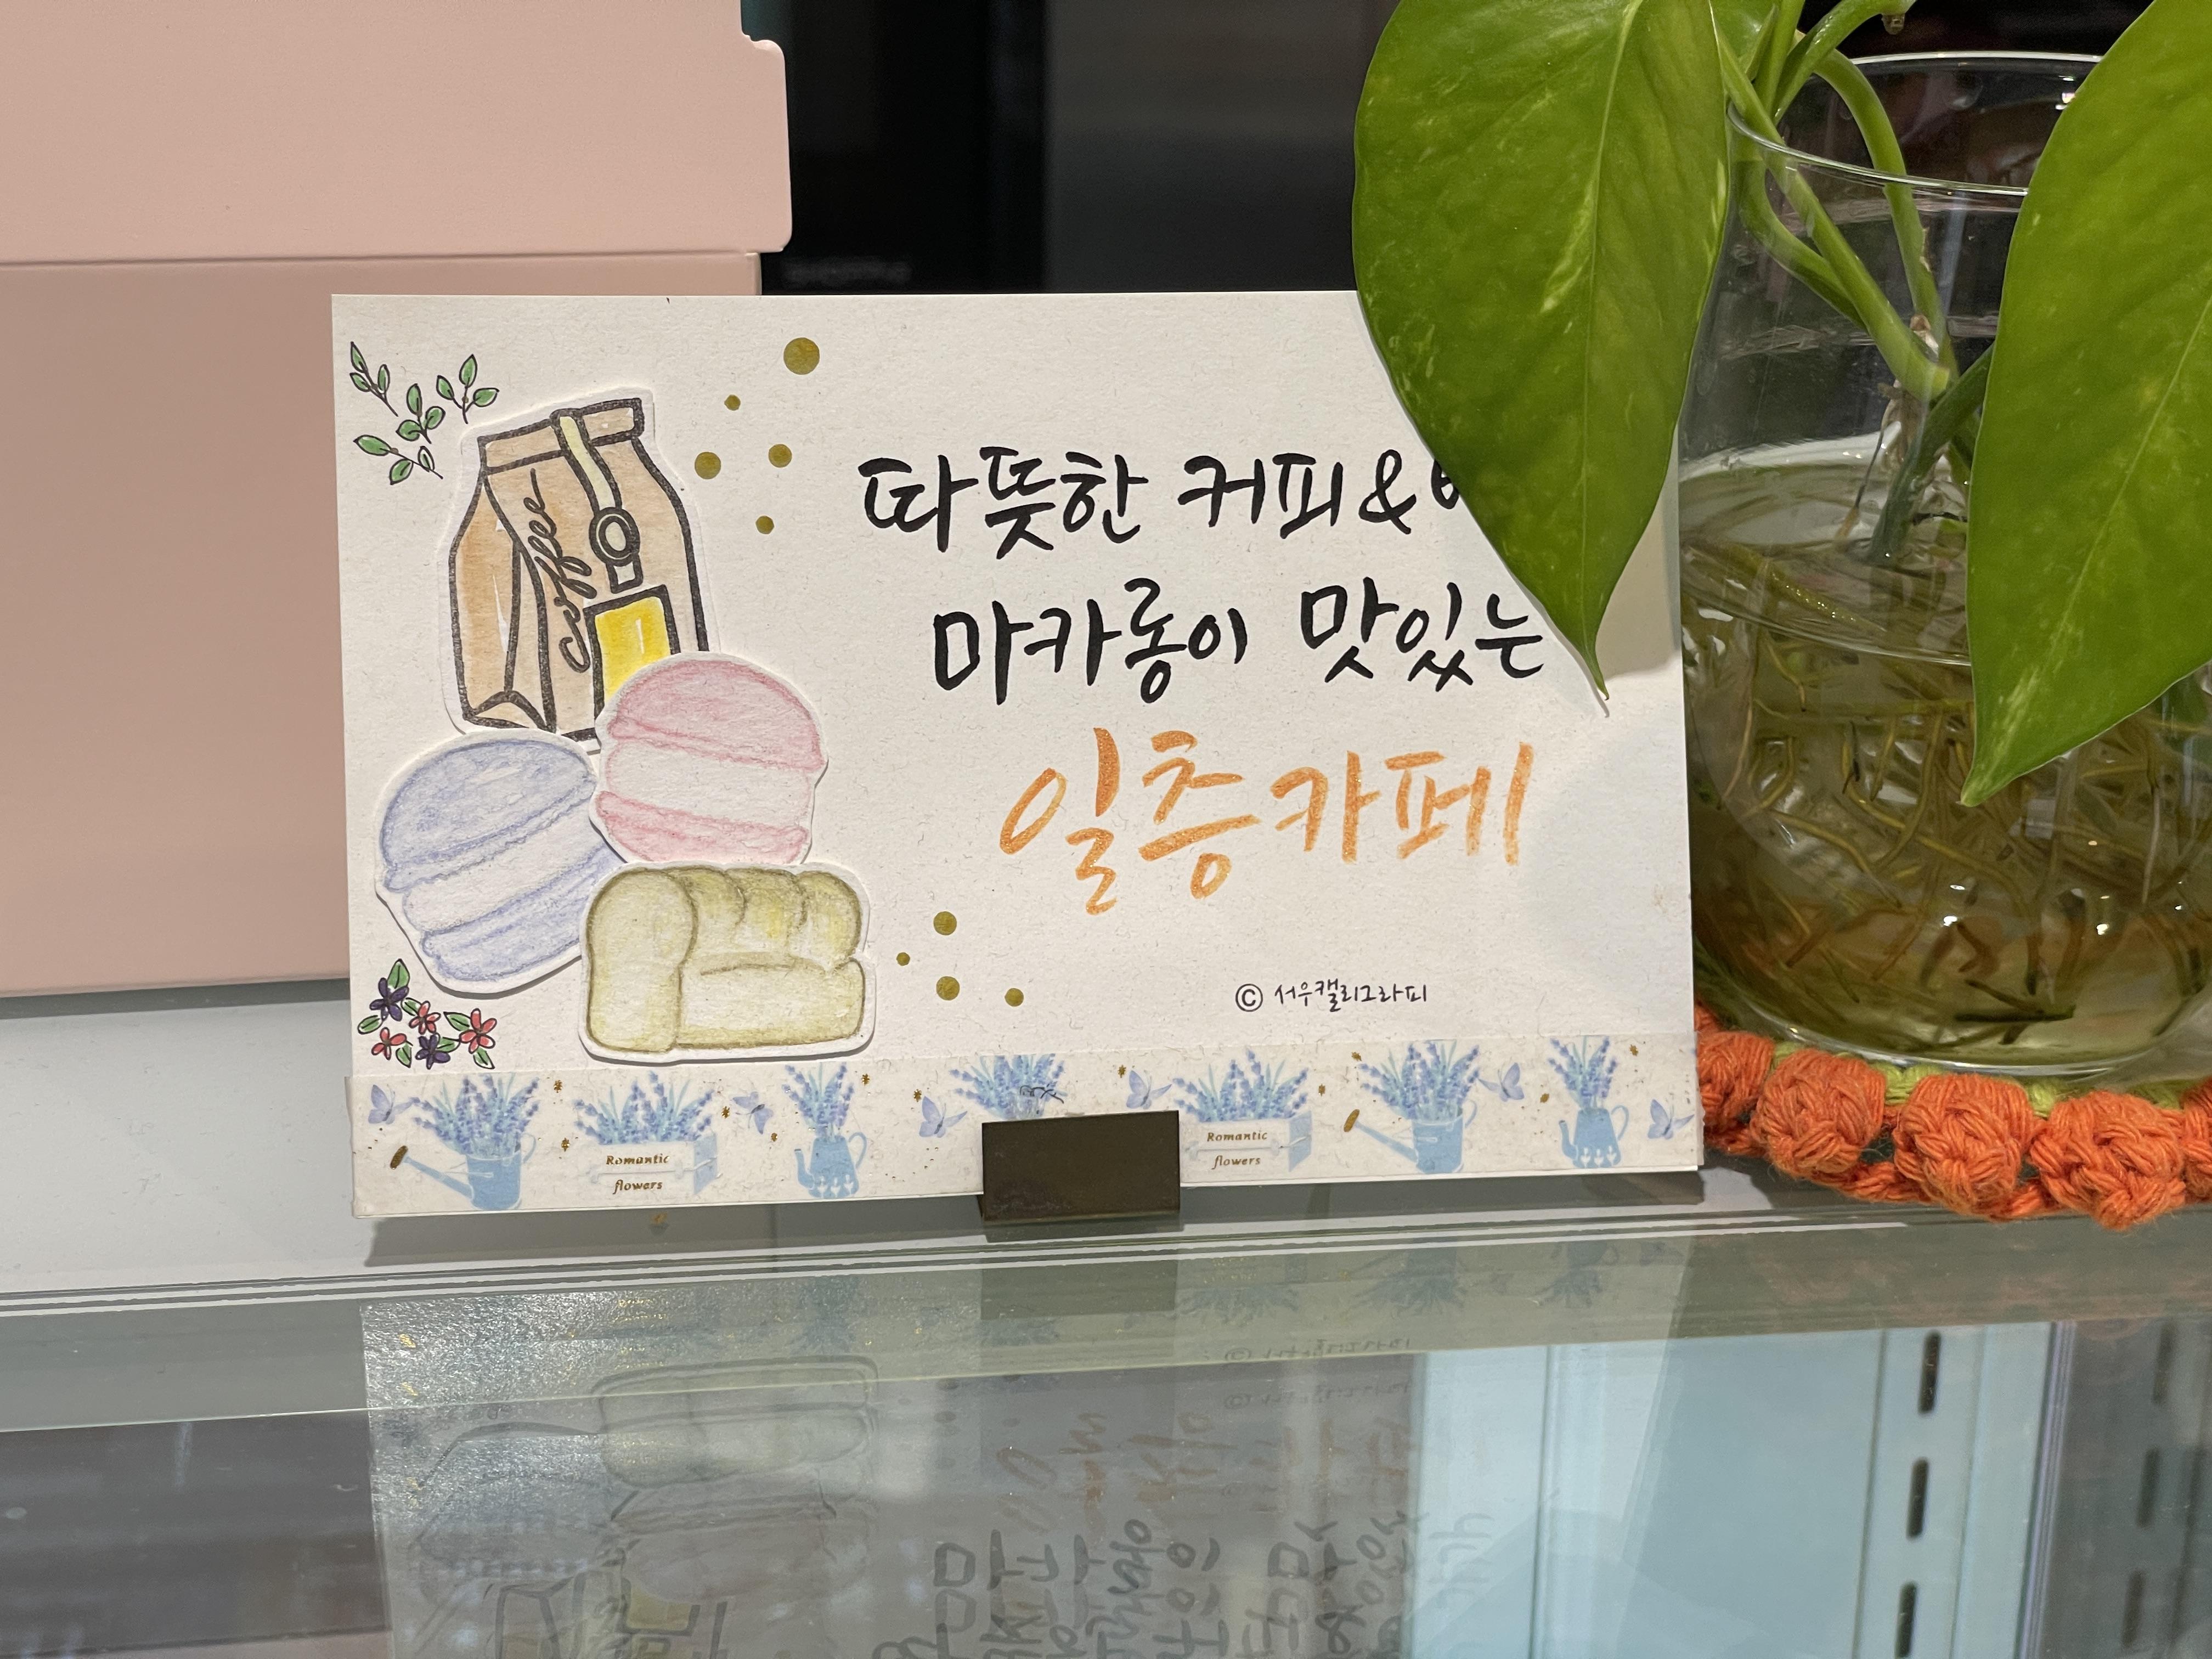 coffee
따뜻한 커피&
마카롱이 맛있는
일층카페
© 서우캘리그라피
Romantic
flowers
Romantic
flowers